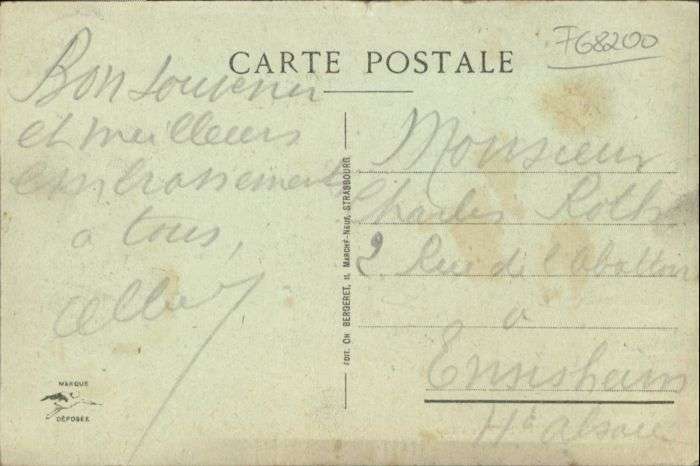 CARTE POSTALE
F68200
Bon souvenir
et meilleurs
embrassements
à tous,
Albert
Monsieur
Charles Roth
2. Rue de l'abattoir
à
Ensisheim
Hte alsace
EDIT. CH BERGERET, 11, MARCHÉ-NEUF, STRASBOURG
MARQUE
DÉPOSÉE